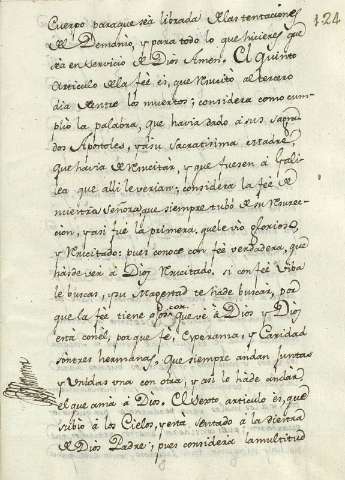 124
Cuerpo paraque sea librada de las tentaciones
del Demonio, y para todo lo que hicieres que
sea en servicio de Dios Amen. El quinto
articulo de la feè es, que resucitò al tercero
dia dentre los muertos; considera como cum-
pliò la palabra, que havia dado à sus sagra-
dos Apostoles, y à su sacratissima Madre,
que havia de resucitar, y que fuesen à Gali-
lea que alli le verian; considera la feè de
nuestra Señora, que siempre tubò de su Resurec-
cion, y asi fue la primera, que le viò glorioso,
y Resucitado: pues conoce con feè verdadera, que
hàs de ver à Dios Resucitado. si con feè viba
le buscas, y su Magestad te hàde buscar, por
que la feè tiene ojos con que vè à Dios y Dios
està con èl, por que feè, Esperansa, y Caridad
son tres hermanas, Que siempre andan juntas
y Unidas una con otra, y asi lo hàde andar
el que ama à Dios. El sexto articulo ès, que
subiò à los Cielos, y està sentado à la diestra
de Dios Padre; pues considera la multitud